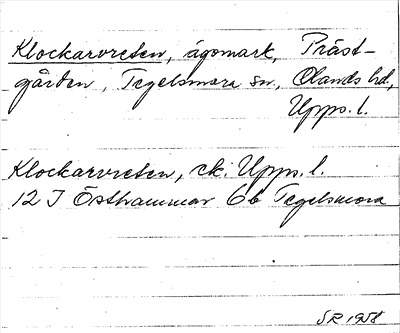 Klockarvreten, ägomark, Präst-
gården, Tegelsmora sn, Olands hd,
Upps. l.
Klockarvreten, ek. Upps. l.
12 I Östhammar 6b Tegelsmora
SR 1958